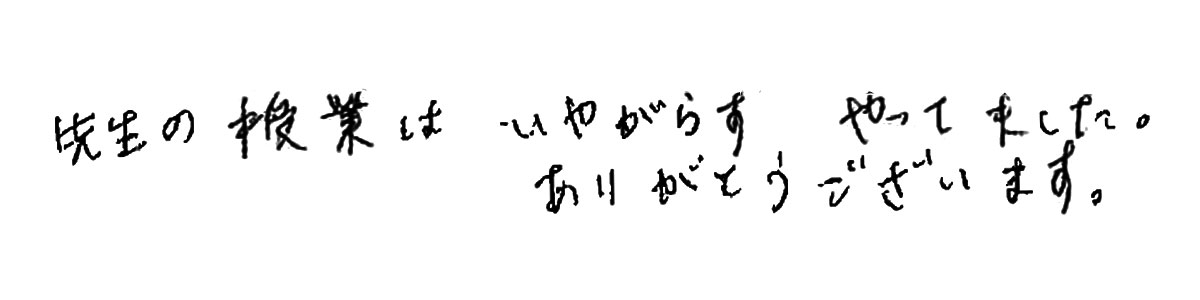 先生の授業は いやがらす やって来した。
ありがとうございます。